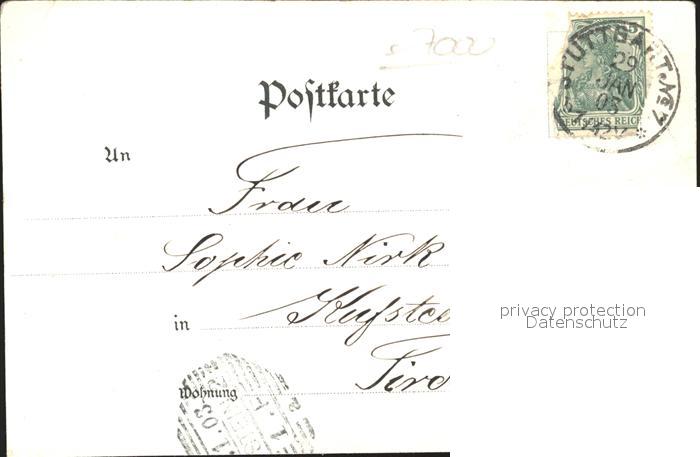 s 7000
Postkarte
STUTTGART. No 7
29
JAN
03
DEUTSCHES REICH
An
Frau
Sophie Nirk
in Kufste
privacy protection
Datenschutz
Tiro
Wohnung